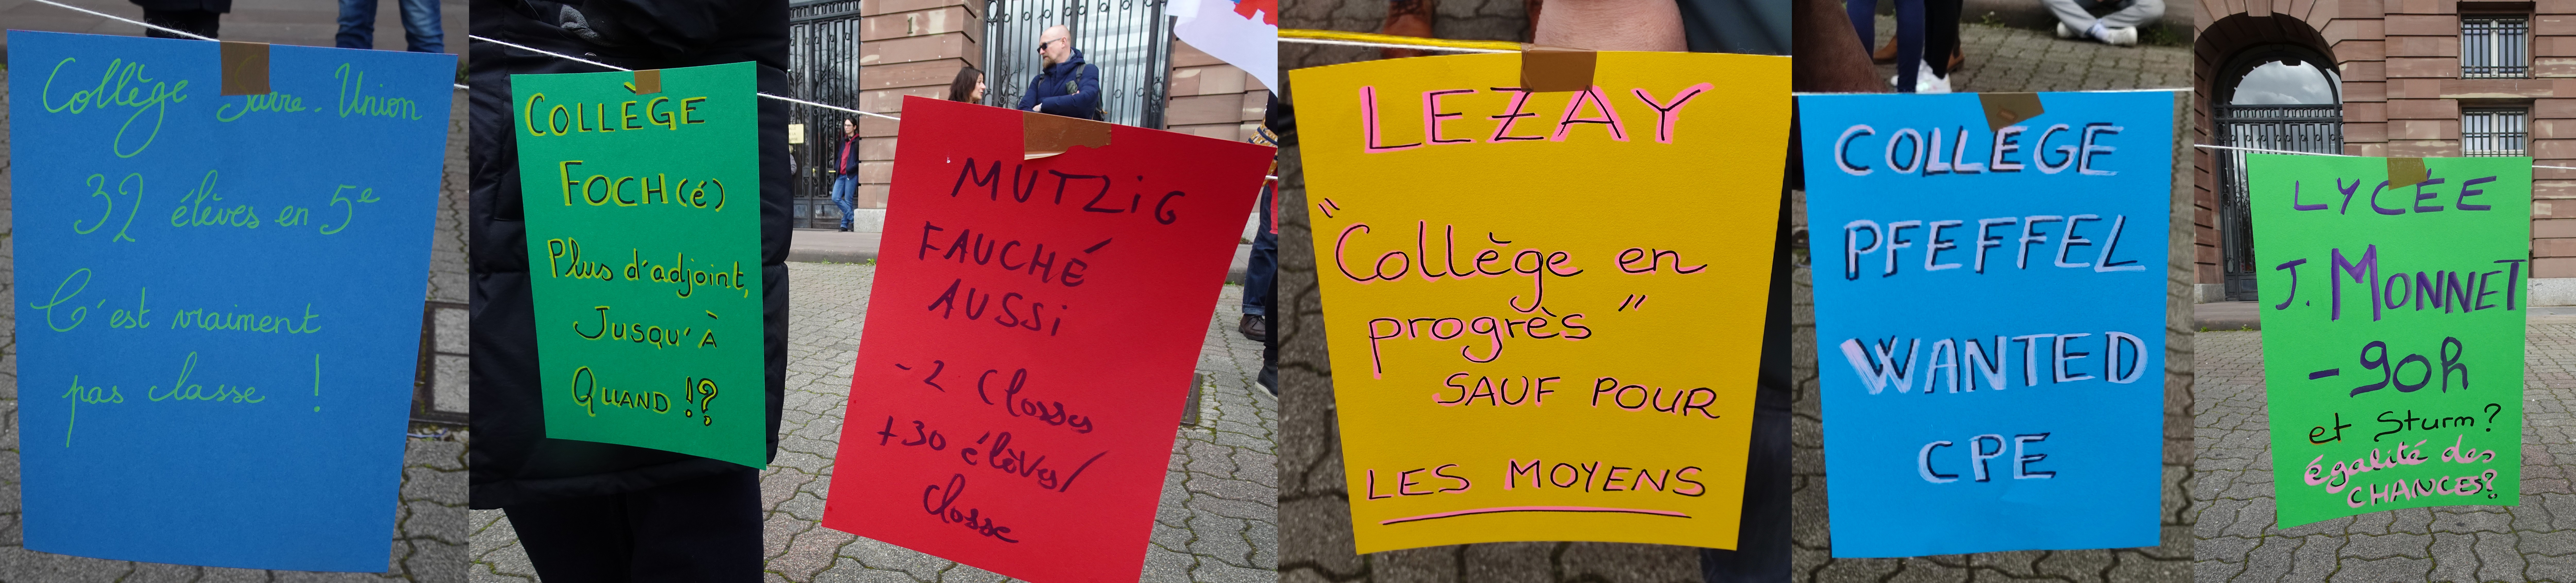 Collège Sarre-Union
32 élèves en 5e
C'est vraiment
pas classe !
COLLÈGE
FOCH(é)
Plus d'adjoint,
Jusqu'à
Quand !?
MUTZiG
FAUCHÉ
AUSSi
-2 Classes
+30 élèves/
classe
LEZAY
"Collège en
progrès"
SAUF POUR
LES MOYENS
COLLEGE
PFEFFEL
WANTED
CPE
LYCÉE
J. MONNET
-90h
et Sturm?
égalité des
CHANCES?